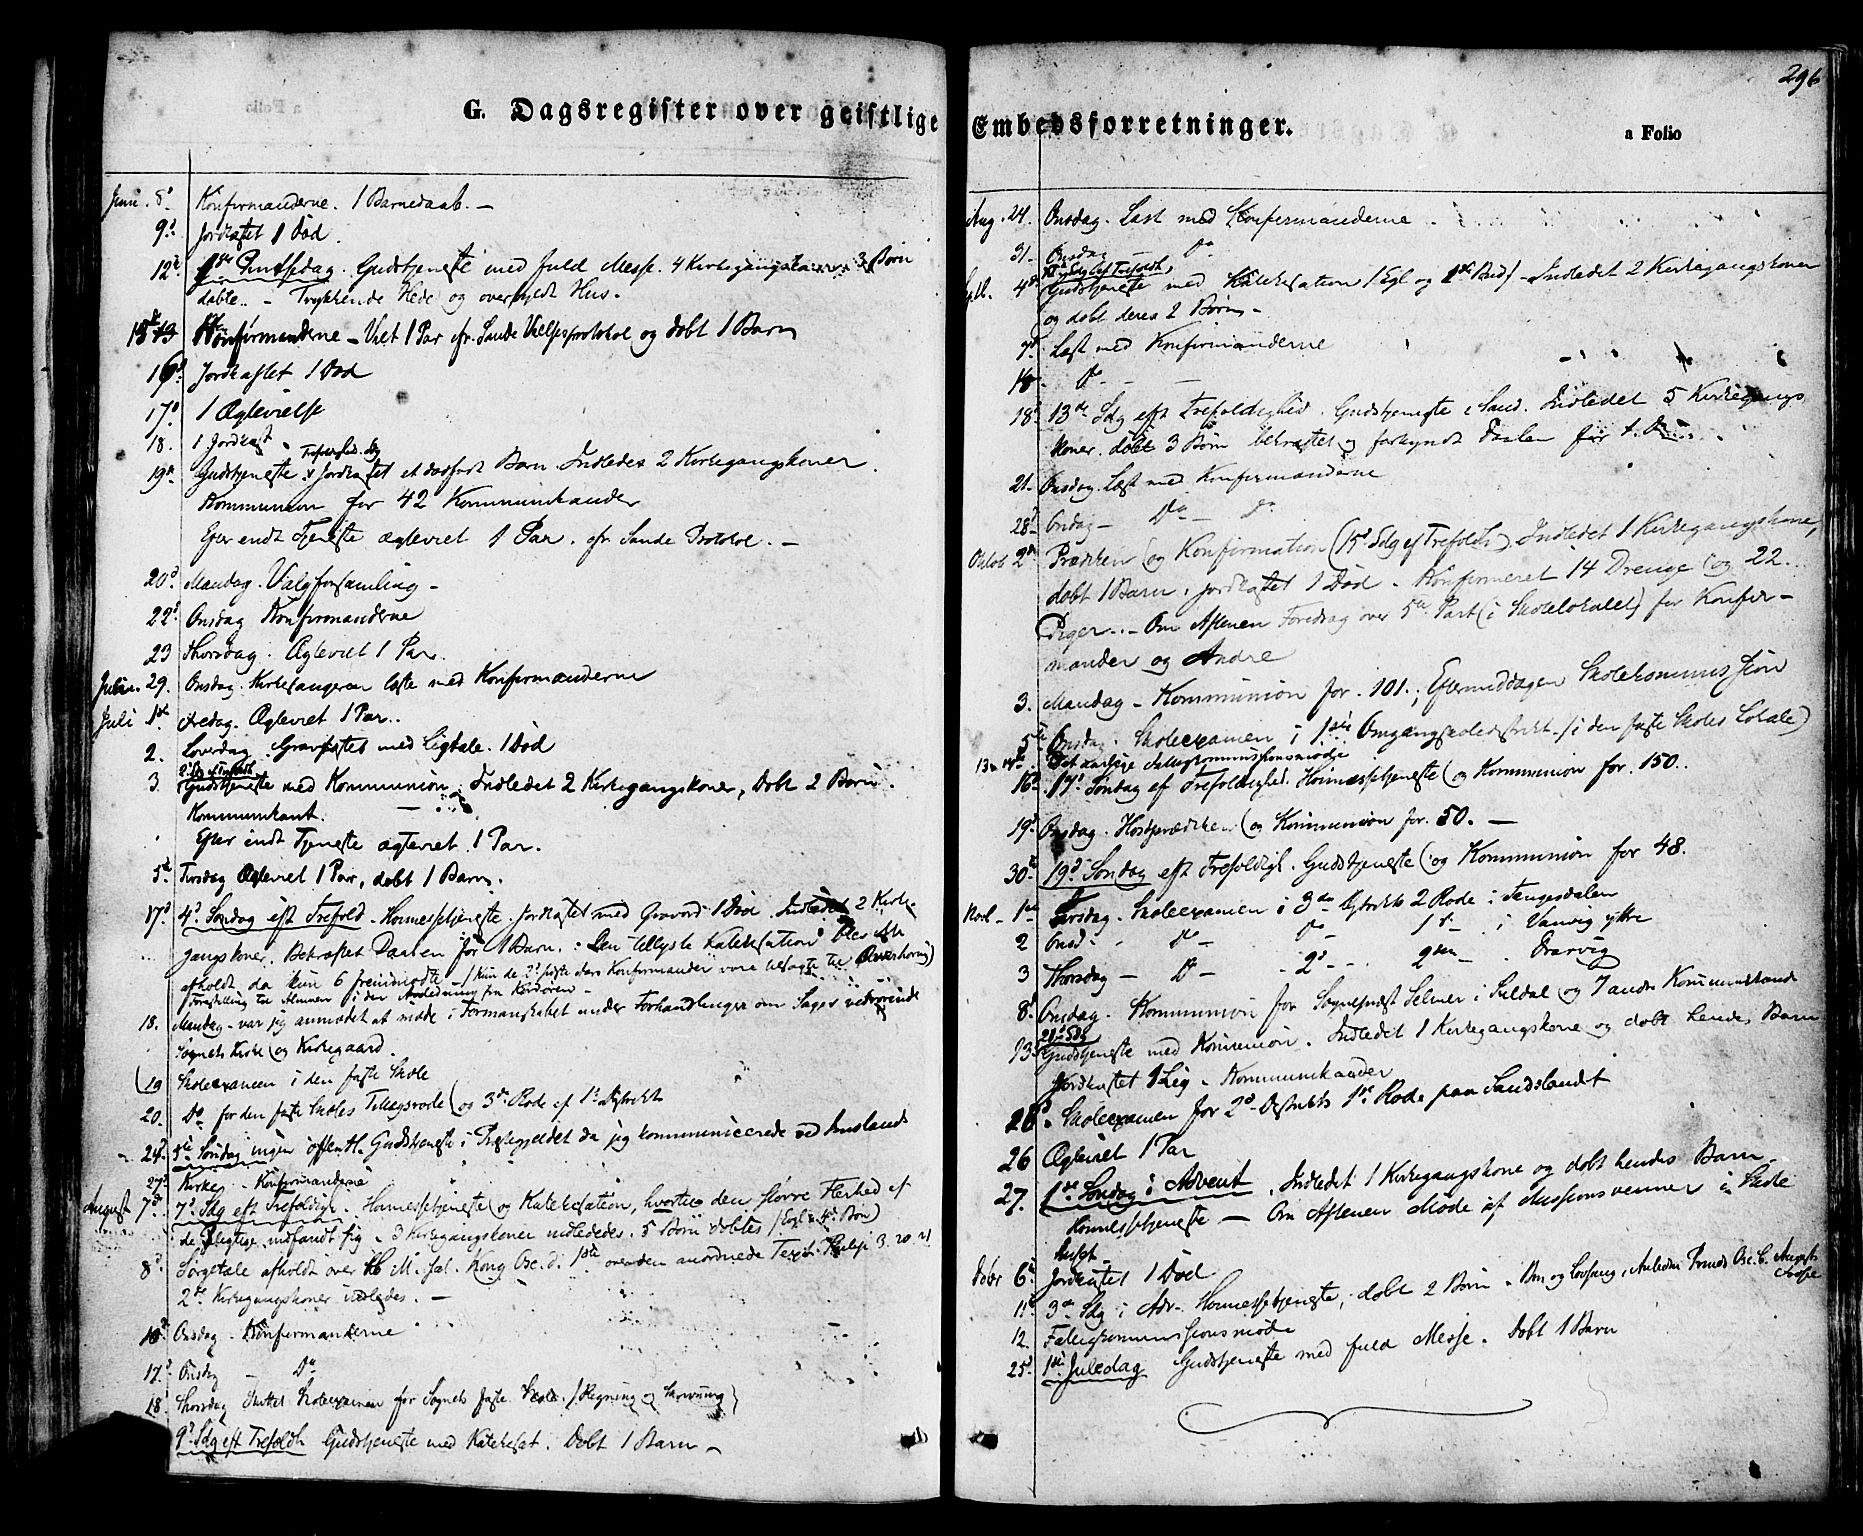 G. Dagsregister over geistlige
Juni 8. Konfirmanderne. 1 Barnedaab. –
9. Jordfæstet 1 Død.
12. 1ste Pintsedag. Gudstjeneste med fuld Messe. 4 Kirkegangskoner 3 Børn
døbte. – Trykkende Hede og overfyldt Hus.
15 Konfirmanderne – Viet 1 Par cfr. Sande Vielsesprotokol og døbt 1 Barn
16. Jordfæstet 1 Død
17. 1 Ægtevielse
18. 1 Jordfæst
19. Gudstjeneste Jordfæstet et dødfødt Barn. Indledet 2 Kirkegangskoner.
Kommunion for 42 Kommunikander
Efter endt Tjeneste ægteviet 1 Par. cfr. Sande Protokol. –
20. Mandag. Valgforsamling –
22. Onsdag Konfirmanderne
23 Thorsdag. Ægteviet 1 Par.
29. Onsdag. Kirkesangeren læste med Konfirmanderne
Juli 1. Fredag. Ægteviet 1 Par.
2. Løverdag. Gravfæstet med Ligtale. 1 Død
3. Gudstjeneste med Kommunion. Indledet 2 Kirkegangskoner, Døbt 2 Børn.
Kommunikant.
Efter endt Tjeneste ægteviet 1 Par.
5. Tirsdag Ægteviet 1 Par, døbt 1 Barn.
17. 4. Søndag eft Trefold. Høimessetjeneste. Jordfæstet med Gravord 1 Død. Indledet 2 Kirke-
gangskoner. Bekræftet Daaben for 1 Barn. Den tillyste Katekisation blev ei
afholdt da kun 6 fremmødte
18. Mandag – var jeg anmodet at møde i Formandskabet under Forhandlinger om Sager vedrørende
Sognets Kirke og Kirkegaard.
19 Skoleexamen i den faste Skole
20. Do for den faste Skoles Tillægsrode og 3die Rode af 1ste Distrikt
24. 5te Søndag ingen offentl. Gudstjeneste i Præstegjeldet da jeg kommunicerede
27. Kirke. – Konfirmanderne
August 7. 7. Sdg eft Trefoldigh. Høimessetjeneste og Katekisation, hvortil den større Flerhed af
de pligtige indfandt sig – 3 Kirkegangskoner indlededes. 5 Børn døbtes
8. Sørgetale afholdt over H. M. sal. Kong Osc. d. 1ste over den anordnede Text. Philip 3. 20. 21
2de Kirkegangskoner indledes. –
10. Onsdag. Konfirmanderne
17. Onsdag – Do
18. Thorsdag Skoleexamen for Sognets faste Skole. / Regning og Skrivning
9. Sdg eft Trefoldh Gudstjeneste med Katekisat. Døbt 1 Barn –
296
Embedsforretninger.
a Folio
Aug. 24. Onsdag. Læst med Konfirmanderne
31. Onsdag – Do
4. Gudstjeneste med Katekisation – Indledet 2 Kirkegangskoner
og døbt deres 2 Børn –
7. Læst med Konfirmanderne
Do –
18. 13de Sdg eft Trefoldighed. Gudstjeneste i Sand. Indledet 5 Kirkegangs
koner. døbt 3 Børn bekræftet og forkyndt Daaben for 1.
21. Onsdag. Læst med Konfirmanderne
28. Onsdag – Do – Do
Oktob 2. Prædiken og Konfirmation. Indledet 1 Kirkegangskone,
døbt 1 Barn, jordfæstet 1 Død. Konfirmeret 14 Drenge og 22
Piger. – Om Aftenen Foredrag over 5te Part (i Skolelokalet) for Konfir-
mander og Andre
3. Mandag – Kommunion for 101.; Eftermiddagen Skolekommission
5. Onsdag. Skoleexamen i 1ste Omgangskoledistrikt /i den faste Skoles Lokale)
13–14. Det aarlige
16. 17. Søndag ef Trefoldighed. Høimessetjeneste og Kommunion for 150.
19. Onsdag. Høstprædiken og Kommunion for 50. –
30. 19. Søndag eft Trefoldigh. Gudstjeneste og Kommunion for 48.
Nov. 1. Tirsdag. Skoleexamen i 3die Distrikts 2 Rode i Tengesdalen
2 Onsd. Do – Do 1. – i Vanvig ytre
3 Thorsdag – Do – 2. – 2den – Drarvig
8. Onsdag. Kommunion for Sognepræst Selmer i Suldal og 7 andre Kommunikand
13. Gudstjeneste med Kommunion. Indledet 1 Kirkegangskone og døbt hendes Barn
Jordfæstet 1 Lig – Kommunikander
Skoleexamen for 2. Distrikts 1ste Rode paa Sandslandet
26 Ægteviet 1 Par
27. 1ste Søndag i Advent. Indledet 1 Kirkegangskone og døbt hendes Barn
Høimessetjeneste – Om Aftenen Møde af Missionsvenner i Skole
huset.
6. Jordfæstet 1 Død
11. 3die Sdg i Adv. Høimessetjeneste, døbt 2 Børn. Bøn og Lovsang,
12. Fælleskommissionsmøde
25. 1ste Juledag Gudstjeneste med fuld Messe. Døbt 1 Barn